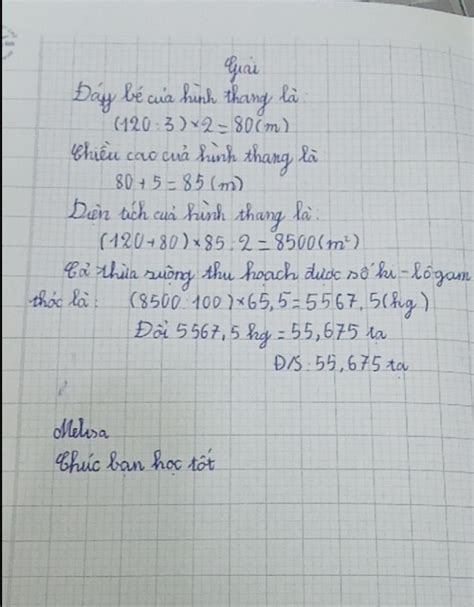 Giải
Đáy bé của hình thang là:
(120 : 3) × 2 = 80 (m)
Chiều cao của hình thang là
80 + 5 = 85 (m)
Diện tích của hình thang là:
(120 + 80) × 85 : 2 = 8500 (m²)
Cả thửa ruộng thu hoạch được số ki-lôgam
thóc là: (8500 : 100) × 65,5 = 5567,5 (kg)
Đổi 5567,5 kg = 55,675 tạ
Đ/S : 55,675 tạ
Melisa
Chúc bạn học tốt